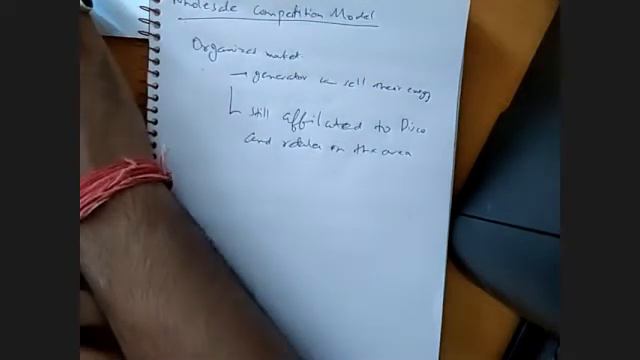 Wholesale Competition Model
Organized market
→ generator can sell their energy
still affiliated to Disco
and retailer on the area